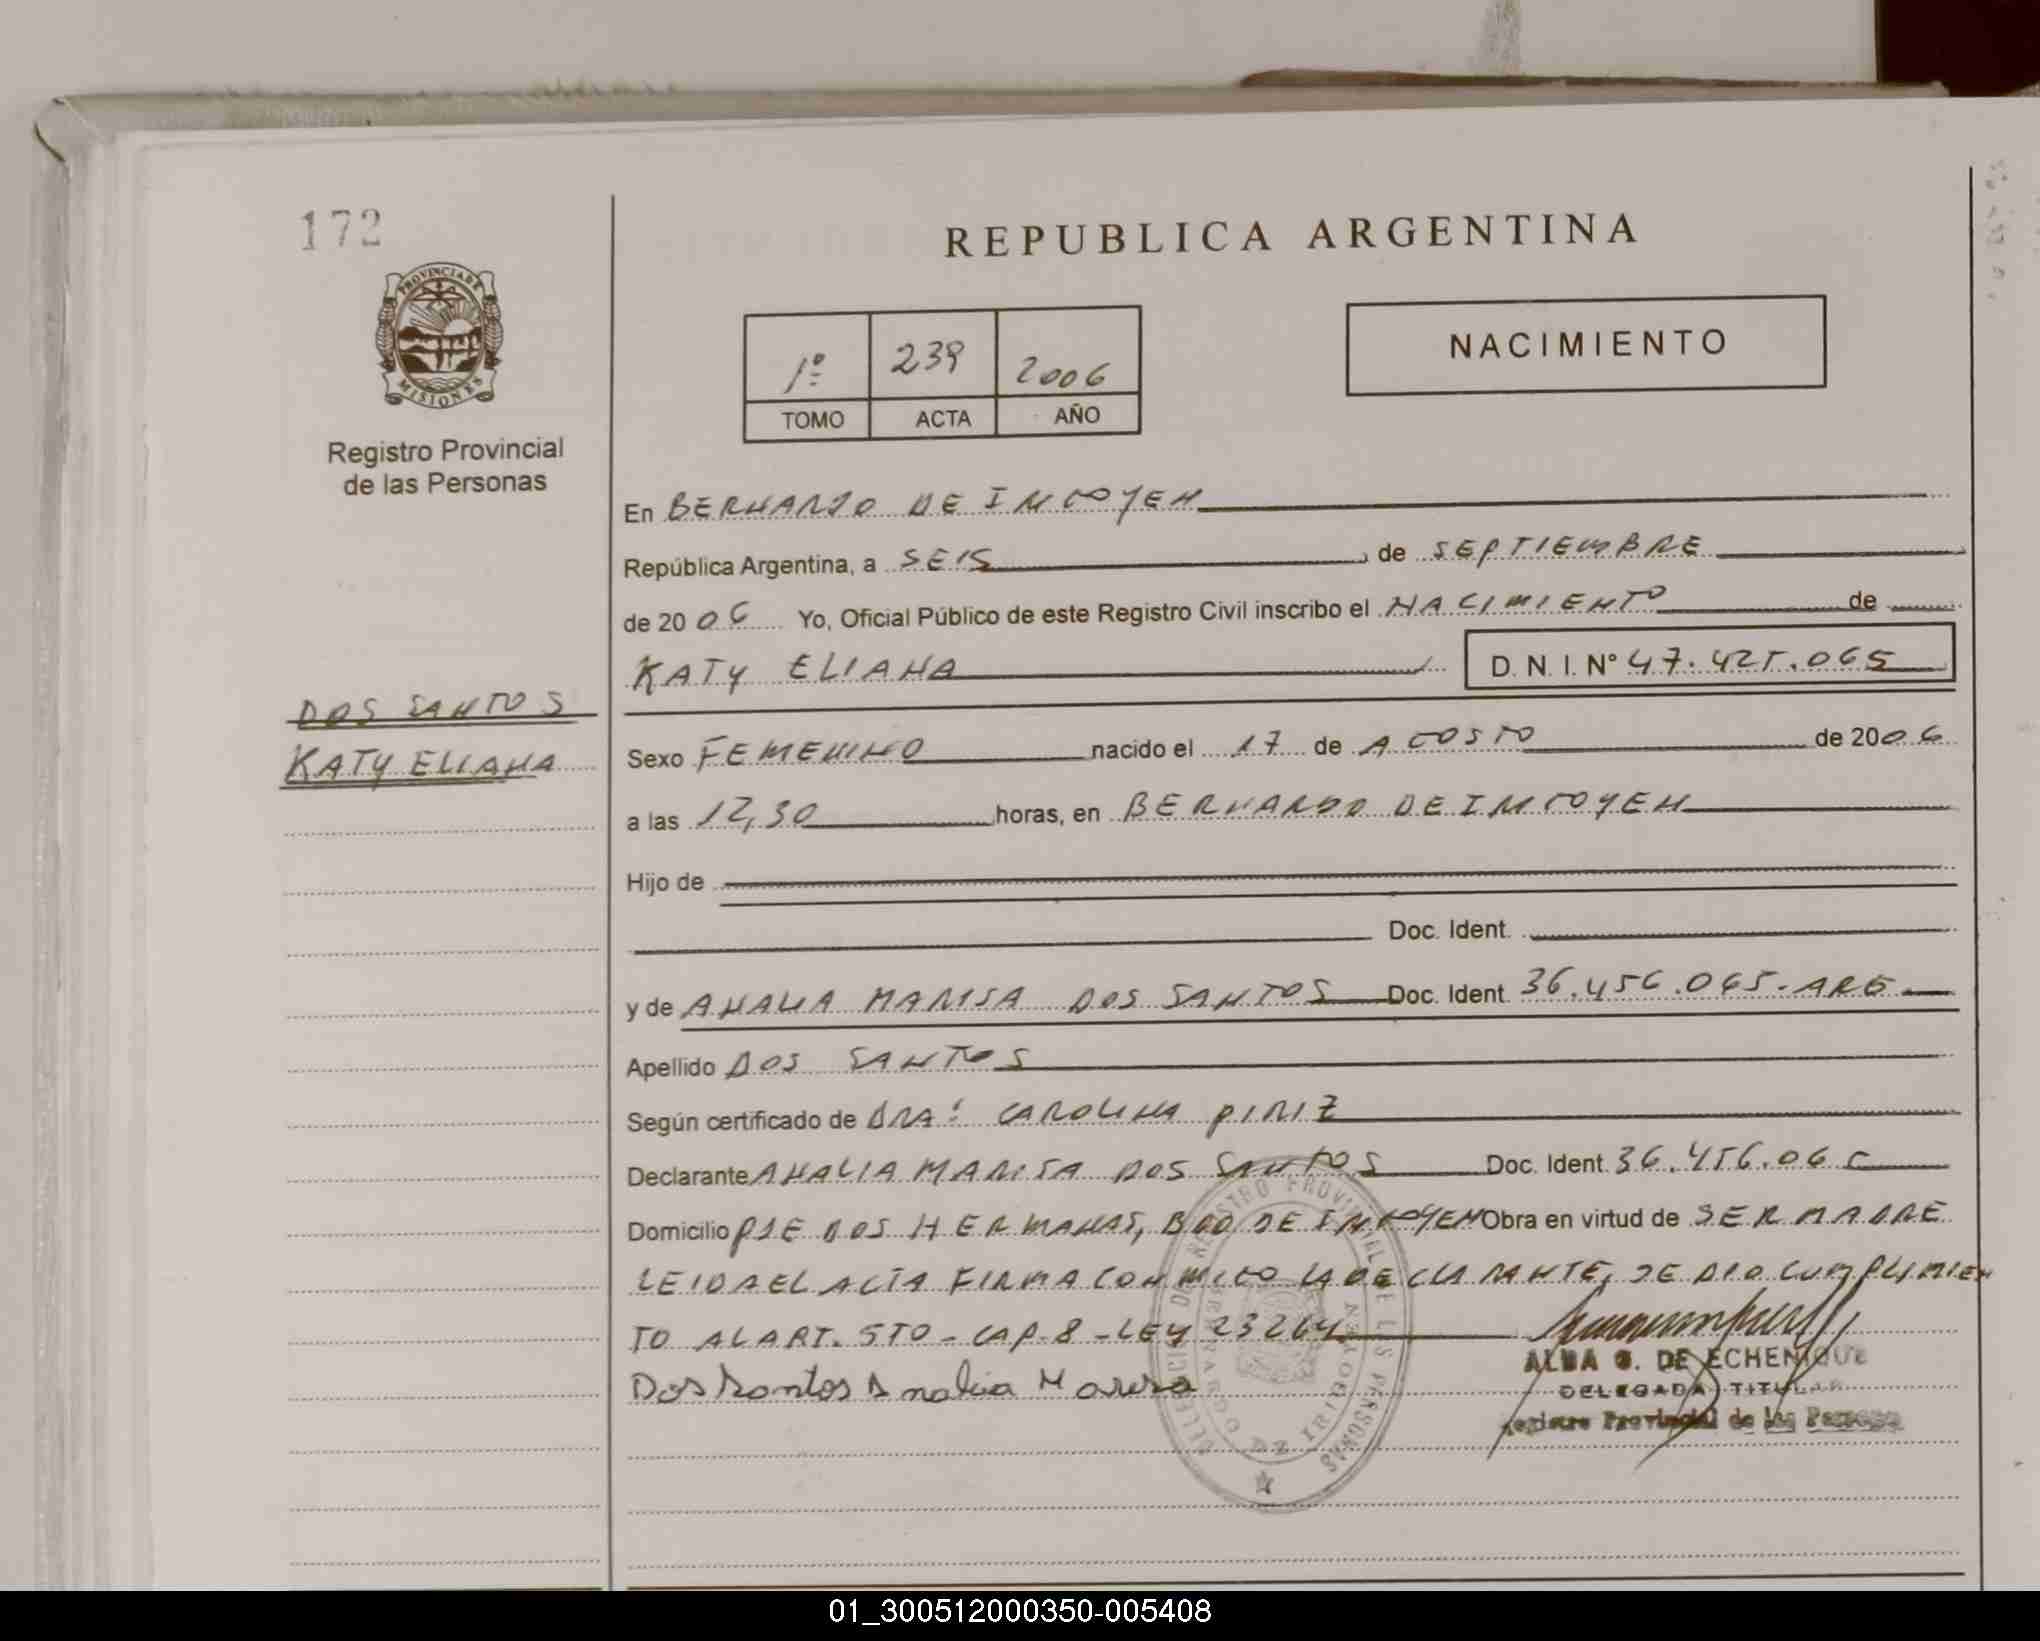 172
PROVINCIA DE
MISIONES
Registro Provincial
de las Personas
REPUBLICA ARGENTINA
1º 239 2006
TOMO ACTA AÑO
NACIMIENTO
En BERNARDO DE IRIGOYEN
República Argentina, a SEIS de SEPTIEMBRE
de 2006 Yo, Oficial Público de este Registro Civil inscribo el NACIMIENTO de
KATY ELIANA D. N. I. Nº 47.425.065
DOS SANTOS
KATY ELIANA
Sexo FEMENINO nacido el 17 de AGOSTO de 2006
a las 12,30 horas, en BERNARDO DE IRIGOYEN
Hijo de
Doc. Ident.
y de ANALIA MARISA DOS SANTOS Doc. Ident. 36.456.065-ARG
Apellido DOS SANTOS
Según certificado de DRA: CAROLINA PIRIZ
Declarante ANALIA MARISA DOS SANTOS Doc. Ident. 36.456.065
Domicilio PJE DOS HERMANAS, BDO DE IRIGOYEN Obra en virtud de SER MADRE
LEIDA EL ACTA FIRMA CONMIGO LA DECLARANTE, SE DIO CUMPLIMIEN
TO AL ART. 5TO - CAP. 8 - LEY 23264
Dos Santos Analia Marisa
ALBA G. DE ECHENIQUE
DELEGADA TITULAR
Registro Provincial de las Personas
01_300512000350-005408